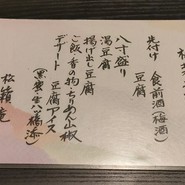 先付け　食前酒（梅酒）
豆腐
八寸盛り
湯豆腐
揚げ出し豆腐
ご飯・香の物・ちりめん山椒
デザート　豆腐アイス
（黒蜜・生八ツ橋添）
松籟庵